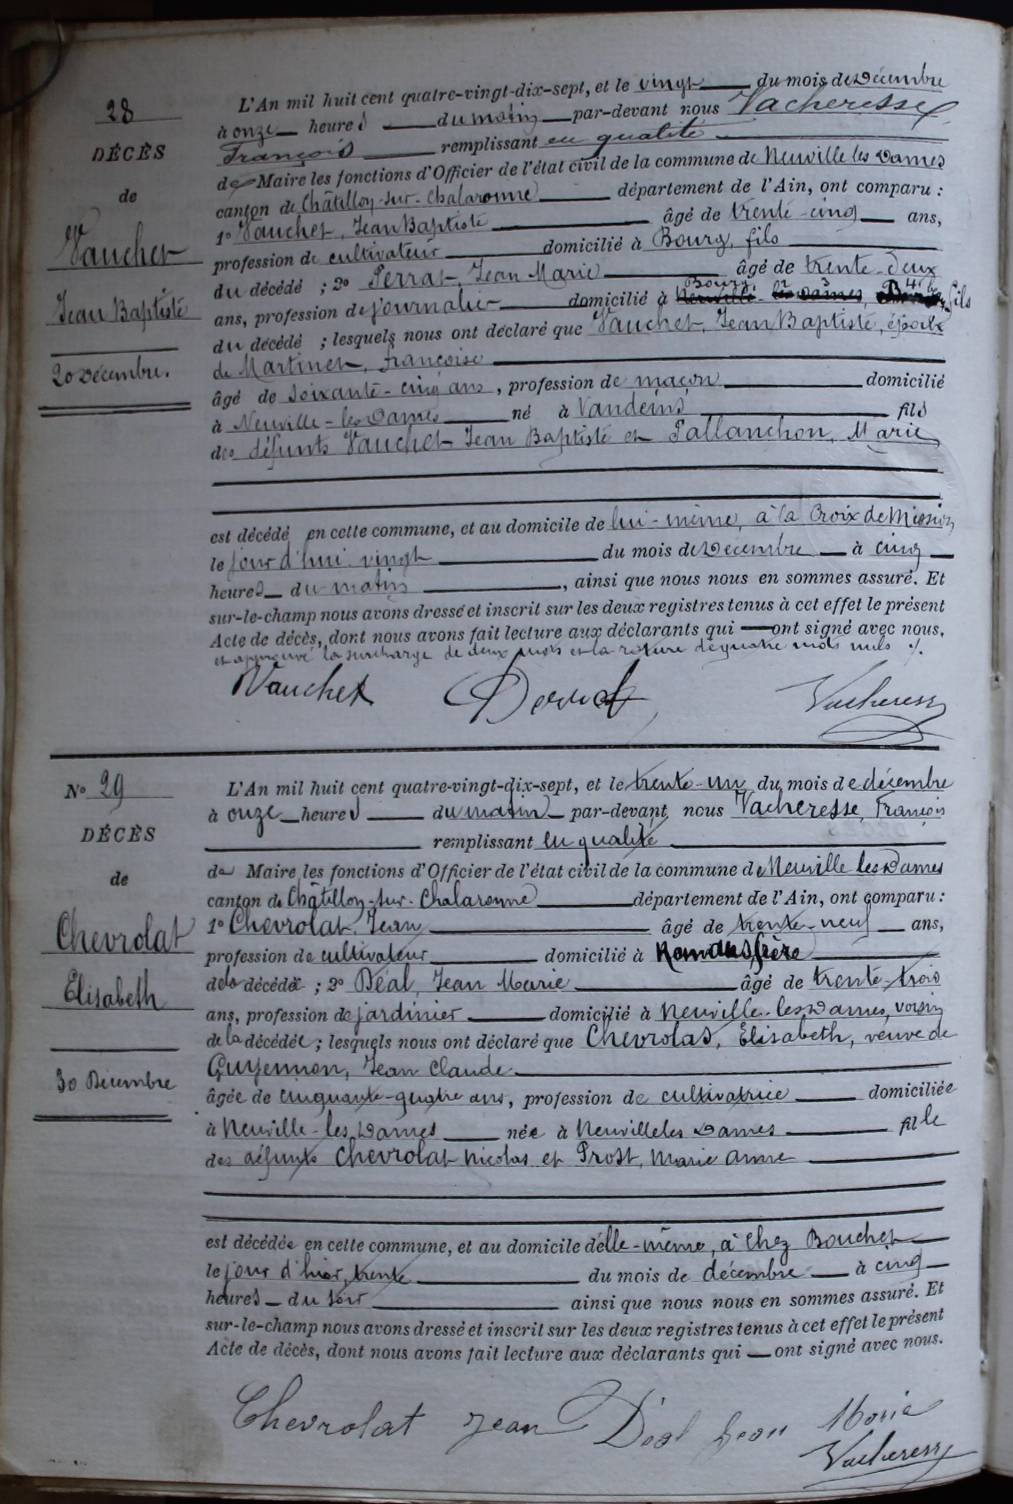 28
DÉCÈS
de
Vaucher
Jean Baptiste
20 Décembre.
L'An mil huit cent quatre-vingt-dix-sept, et le vingt du mois de Décembre
à onze heures du matin par-devant nous Vacheresse,
François remplissant en qualité
de Maire les fonctions d'Officier de l'état civil de la commune de Neuville les Dames
canton de Châtillon-sur-Chalaronne département de l'Ain, ont comparu :
1º Vaucher, Jean Baptiste âgé de trente-cinq ans,
profession de cultivateur domicilié à Bourg, fils
du décédé ; 2º Perrat, Jean Marie âgé de trente-deux
ans, profession de journalier domicilié à Bourg, fils
du décédé ; lesquels nous ont déclaré que Vaucher, Jean Baptiste, époux
de Martinet, Françoise
âgé de soixante-cinq ans, profession de maçon domicilié
à Neuville-les-Dames né à Vandeins fils
des défunts Vaucher Jean Baptiste et Pallanchon, Marie
est décédé en cette commune, et au domicile de lui-même, à la Croix de Mission
le jour d'hui vingt du mois de Décembre à cinq
heures du matin, ainsi que nous nous en sommes assuré. Et
sur-le-champ nous avons dressé et inscrit sur les deux registres tenus à cet effet le présent
Acte de décès, dont nous avons fait lecture aux déclarants qui ont signé avec nous.
et approuvé la surcharge de deux mots et la rature de quatre mots nuls ./.
Vaucher Perrat Vacheresse
Nº 29
DÉCÈS
de
Chevrolat
Elisabeth
30 Décembre
L'An mil huit cent quatre-vingt-dix-sept, et le trente-un du mois de décembre
à onze heures du matin par-devant nous Vacheresse, François
remplissant en qualité
de Maire les fonctions d'Officier de l'état civil de la commune de Neuville les Dames
canton de Châtillon-sur-Chalaronne département de l'Ain, ont comparu :
1º Chevrolat, Jean âgé de trente-neuf ans,
profession de cultivateur domicilié à Romans, frère
de la décédée ; 2º Déal, Jean Marie âgé de trente-trois
ans, profession de jardinier domicilié à Neuville-les-Dames, voisin
de la décédée ; lesquels nous ont déclaré que Chevrolat, Elisabeth, veuve de
Guyennon, Jean Claude
âgée de cinquante-quatre ans, profession de cultivatrice domiciliée
à Neuville-les-Dames née à Neuville les Dames fille
des défunts Chevrolat Nicolas et Prost, Marie Anne
est décédée en cette commune, et au domicile d'elle-même, à Chez Boucher
le jour d'hier, trente du mois de décembre à cinq
heures du soir ainsi que nous nous en sommes assuré. Et
sur-le-champ nous avons dressé et inscrit sur les deux registres tenus à cet effet le présent
Acte de décès, dont nous avons fait lecture aux déclarants qui ont signé avec nous.
Chevrolat Jean Déal Jean Marie
Vacheresse